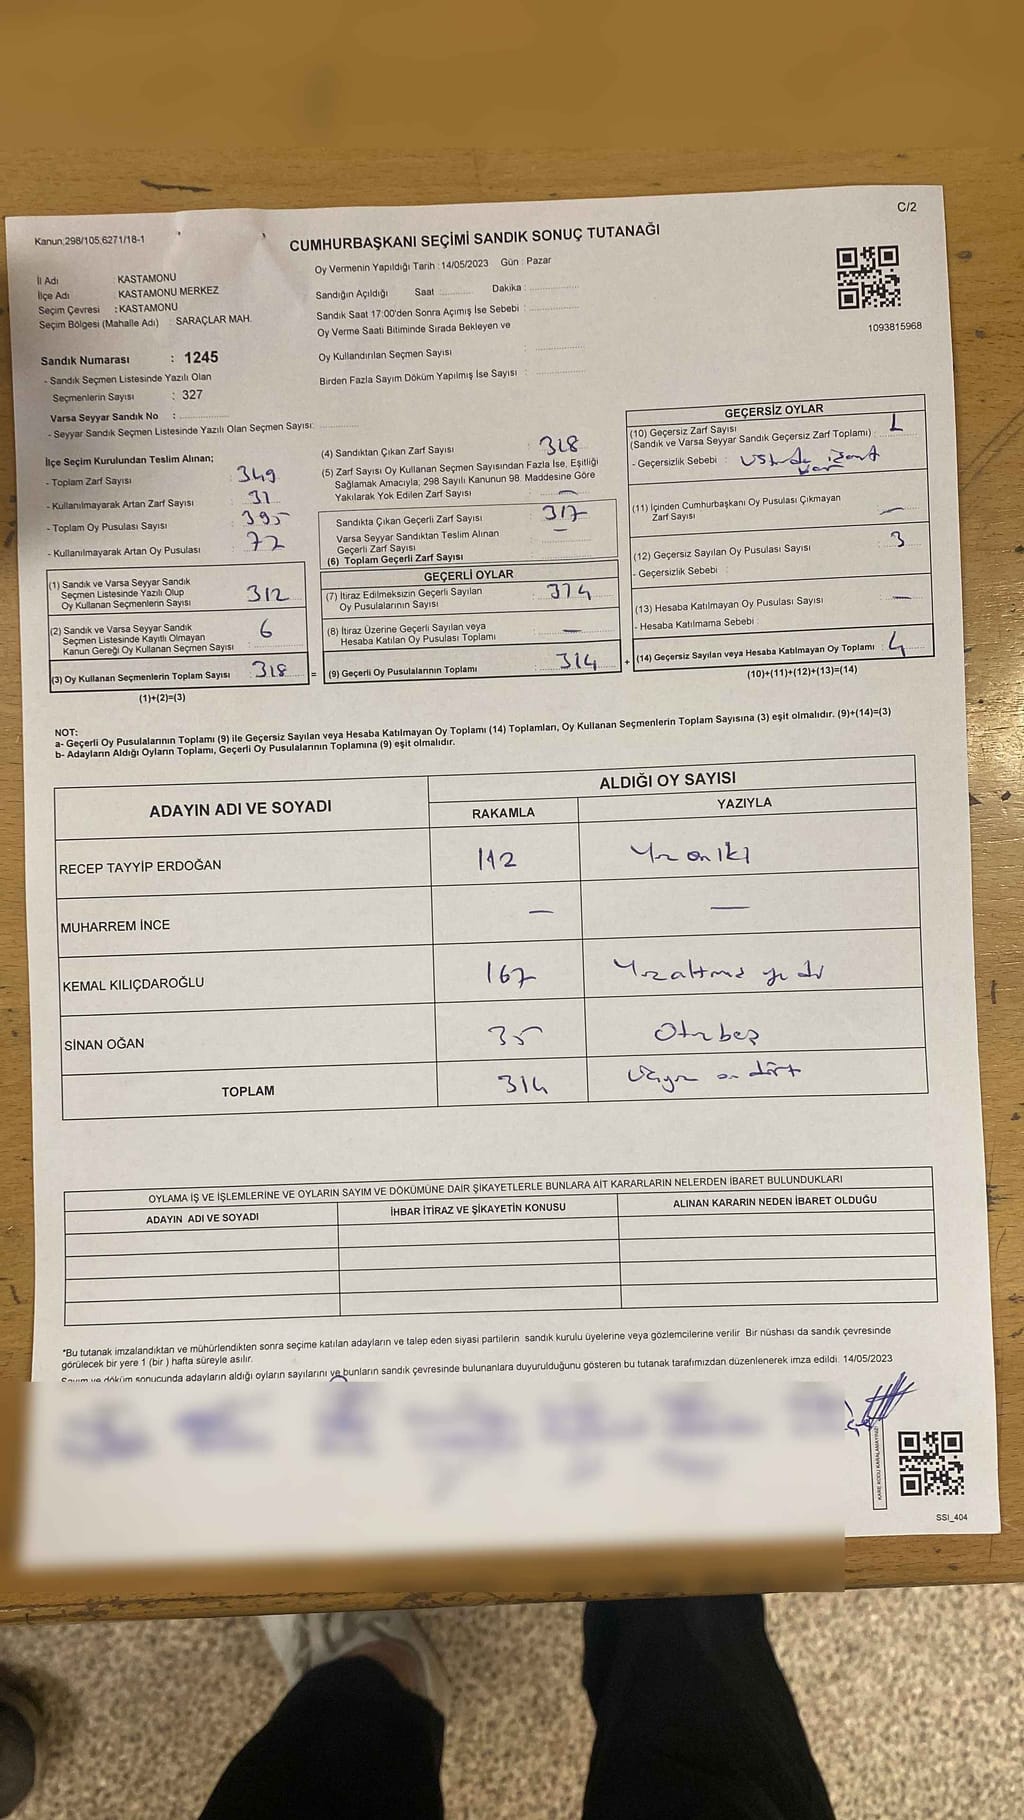 C/2
Kanun;298/105,6271/18-1
CUMHURBAŞKANI SEÇİMİ SANDIK SONUÇ TUTANAĞI
İl Adı : KASTAMONU
İlçe Adı : KASTAMONU MERKEZ
Seçim Çevresi : KASTAMONU
Seçim Bölgesi (Mahalle Adı) : SARAÇLAR MAH.
Oy Vermenin Yapıldığı Tarih : 14/05/2023 Gün : Pazar
Sandığın Açıldığı Saat ............ Dakika : ............
Sandık Saat 17:00'den Sonra Açımış İse Sebebi : ............
Oy Verme Saati Bitiminde Sırada Bekleyen ve
Oy Kullandırılan Seçmen Sayısı : ............
Birden Fazla Sayım Döküm Yapılmış İse Sayısı : ............
1093815968
Sandık Numarası : 1245
- Sandık Seçmen Listesinde Yazılı Olan
Seçmenlerin Sayısı : 327
Varsa Seyyar Sandık No : ............
- Seyyar Sandık Seçmen Listesinde Yazılı Olan Seçmen Sayısı: ............
İlçe Seçim Kurulundan Teslim Alınan;
- Toplam Zarf Sayısı : 349
- Kullanılmayarak Artan Zarf Sayısı : 31
- Toplam Oy Pusulası Sayısı : 395
- Kullanılmayarak Artan Oy Pusulası : 72
(1) Sandık ve Varsa Seyyar Sandık
Seçmen Listesinde Yazılı Olup
Oy Kullanan Seçmenlerin Sayısı : 312
(2) Sandık ve Varsa Seyyar Sandık
Seçmen Listesinde Kayıtlı Olmayan
Kanun Gereği Oy Kullanan Seçmen Sayısı : 6
(3) Oy Kullanan Seçmenlerin Toplam Sayısı : 318 =
(1)+(2)=(3)
(4) Sandıktan Çıkan Zarf Sayısı : 318
(5) Zarf Sayısı Oy Kullanan Seçmen Sayısından Fazla İse, Eşitliği
Sağlamak Amacıyla; 298 Sayılı Kanunun 98. Maddesine Göre
Yakılarak Yok Edilen Zarf Sayısı : —
Sandıkta Çıkan Geçerli Zarf Sayısı : 317
Varsa Seyyar Sandıktan Teslim Alınan
Geçerli Zarf Sayısı : —
(6) Toplam Geçerli Zarf Sayısı
GEÇERLİ OYLAR
(7) İtiraz Edilmeksizin Geçerli Sayılan
Oy Pusulalarının Sayısı : 314
(8) İtiraz Üzerine Geçerli Sayılan veya
Hesaba Katılan Oy Pusulası Toplamı : —
(9) Geçerli Oy Pusulalarının Toplamı : 314 +
GEÇERSİZ OYLAR
(10) Geçersiz Zarf Sayısı
(Sandık ve Varsa Seyyar Sandık Geçersiz Zarf Toplamı) : 1
- Geçersizlik Sebebi : Üstünde işaret
var
(11) İçinden Cumhurbaşkanı Oy Pusulası Çıkmayan
Zarf Sayısı : —
(12) Geçersiz Sayılan Oy Pusulası Sayısı : 3
- Geçersizlik Sebebi :
(13) Hesaba Katılmayan Oy Pusulası Sayısı : —
- Hesaba Katılmama Sebebi :
(14) Geçersiz Sayılan veya Hesaba Katılmayan Oy Toplamı : 4
(10)+(11)+(12)+(13)=(14)
NOT:
a- Geçerli Oy Pusulalarının Toplamı (9) ile Geçersiz Sayılan veya Hesaba Katılmayan Oy Toplamı (14) Toplamları, Oy Kullanan Seçmenlerin Toplam Sayısına (3) eşit olmalıdır. (9)+(14)=(3)
b- Adayların Aldığı Oyların Toplamı, Geçerli Oy Pusulalarının Toplamına (9) eşit olmalıdır.
ADAYIN ADI VE SOYADI ALDIĞI OY SAYISI
RAKAMLA YAZIYLA
RECEP TAYYİP ERDOĞAN 112 Yüz on iki
MUHARREM İNCE — —
KEMAL KILIÇDAROĞLU 167 Yüzaltmış yedi
SİNAN OĞAN 35 Otuzbeş
TOPLAM 314 Üçyüz on dört
OYLAMA İŞ VE İŞLEMLERİNE VE OYLARIN SAYIM VE DÖKÜMÜNE DAİR ŞİKAYETLERLE BUNLARA AİT KARARLARIN NELERDEN İBARET BULUNDUKLARI
ADAYIN ADI VE SOYADI İHBAR İTİRAZ VE ŞİKAYETİN KONUSU ALINAN KARARIN NEDEN İBARET OLDUĞU
*Bu tutanak imzalandıktan ve mühürlendikten sonra seçime katılan adayların ve talep eden siyasi partilerin sandık kurulu üyelerine veya gözlemcilerine verilir Bir nüshası da sandık çevresinde
görülecek bir yere 1 (bir ) hafta süreyle asılır.
Sayım ve döküm sonucunda adayların aldığı oyların sayılarını ve bunların sandık çevresinde bulunanlara duyurulduğunu gösteren bu tutanak tarafımızdan düzenlenerek imza edildi. 14/05/2023
KARE KODU KARALAMAYINIZ
SSI_404